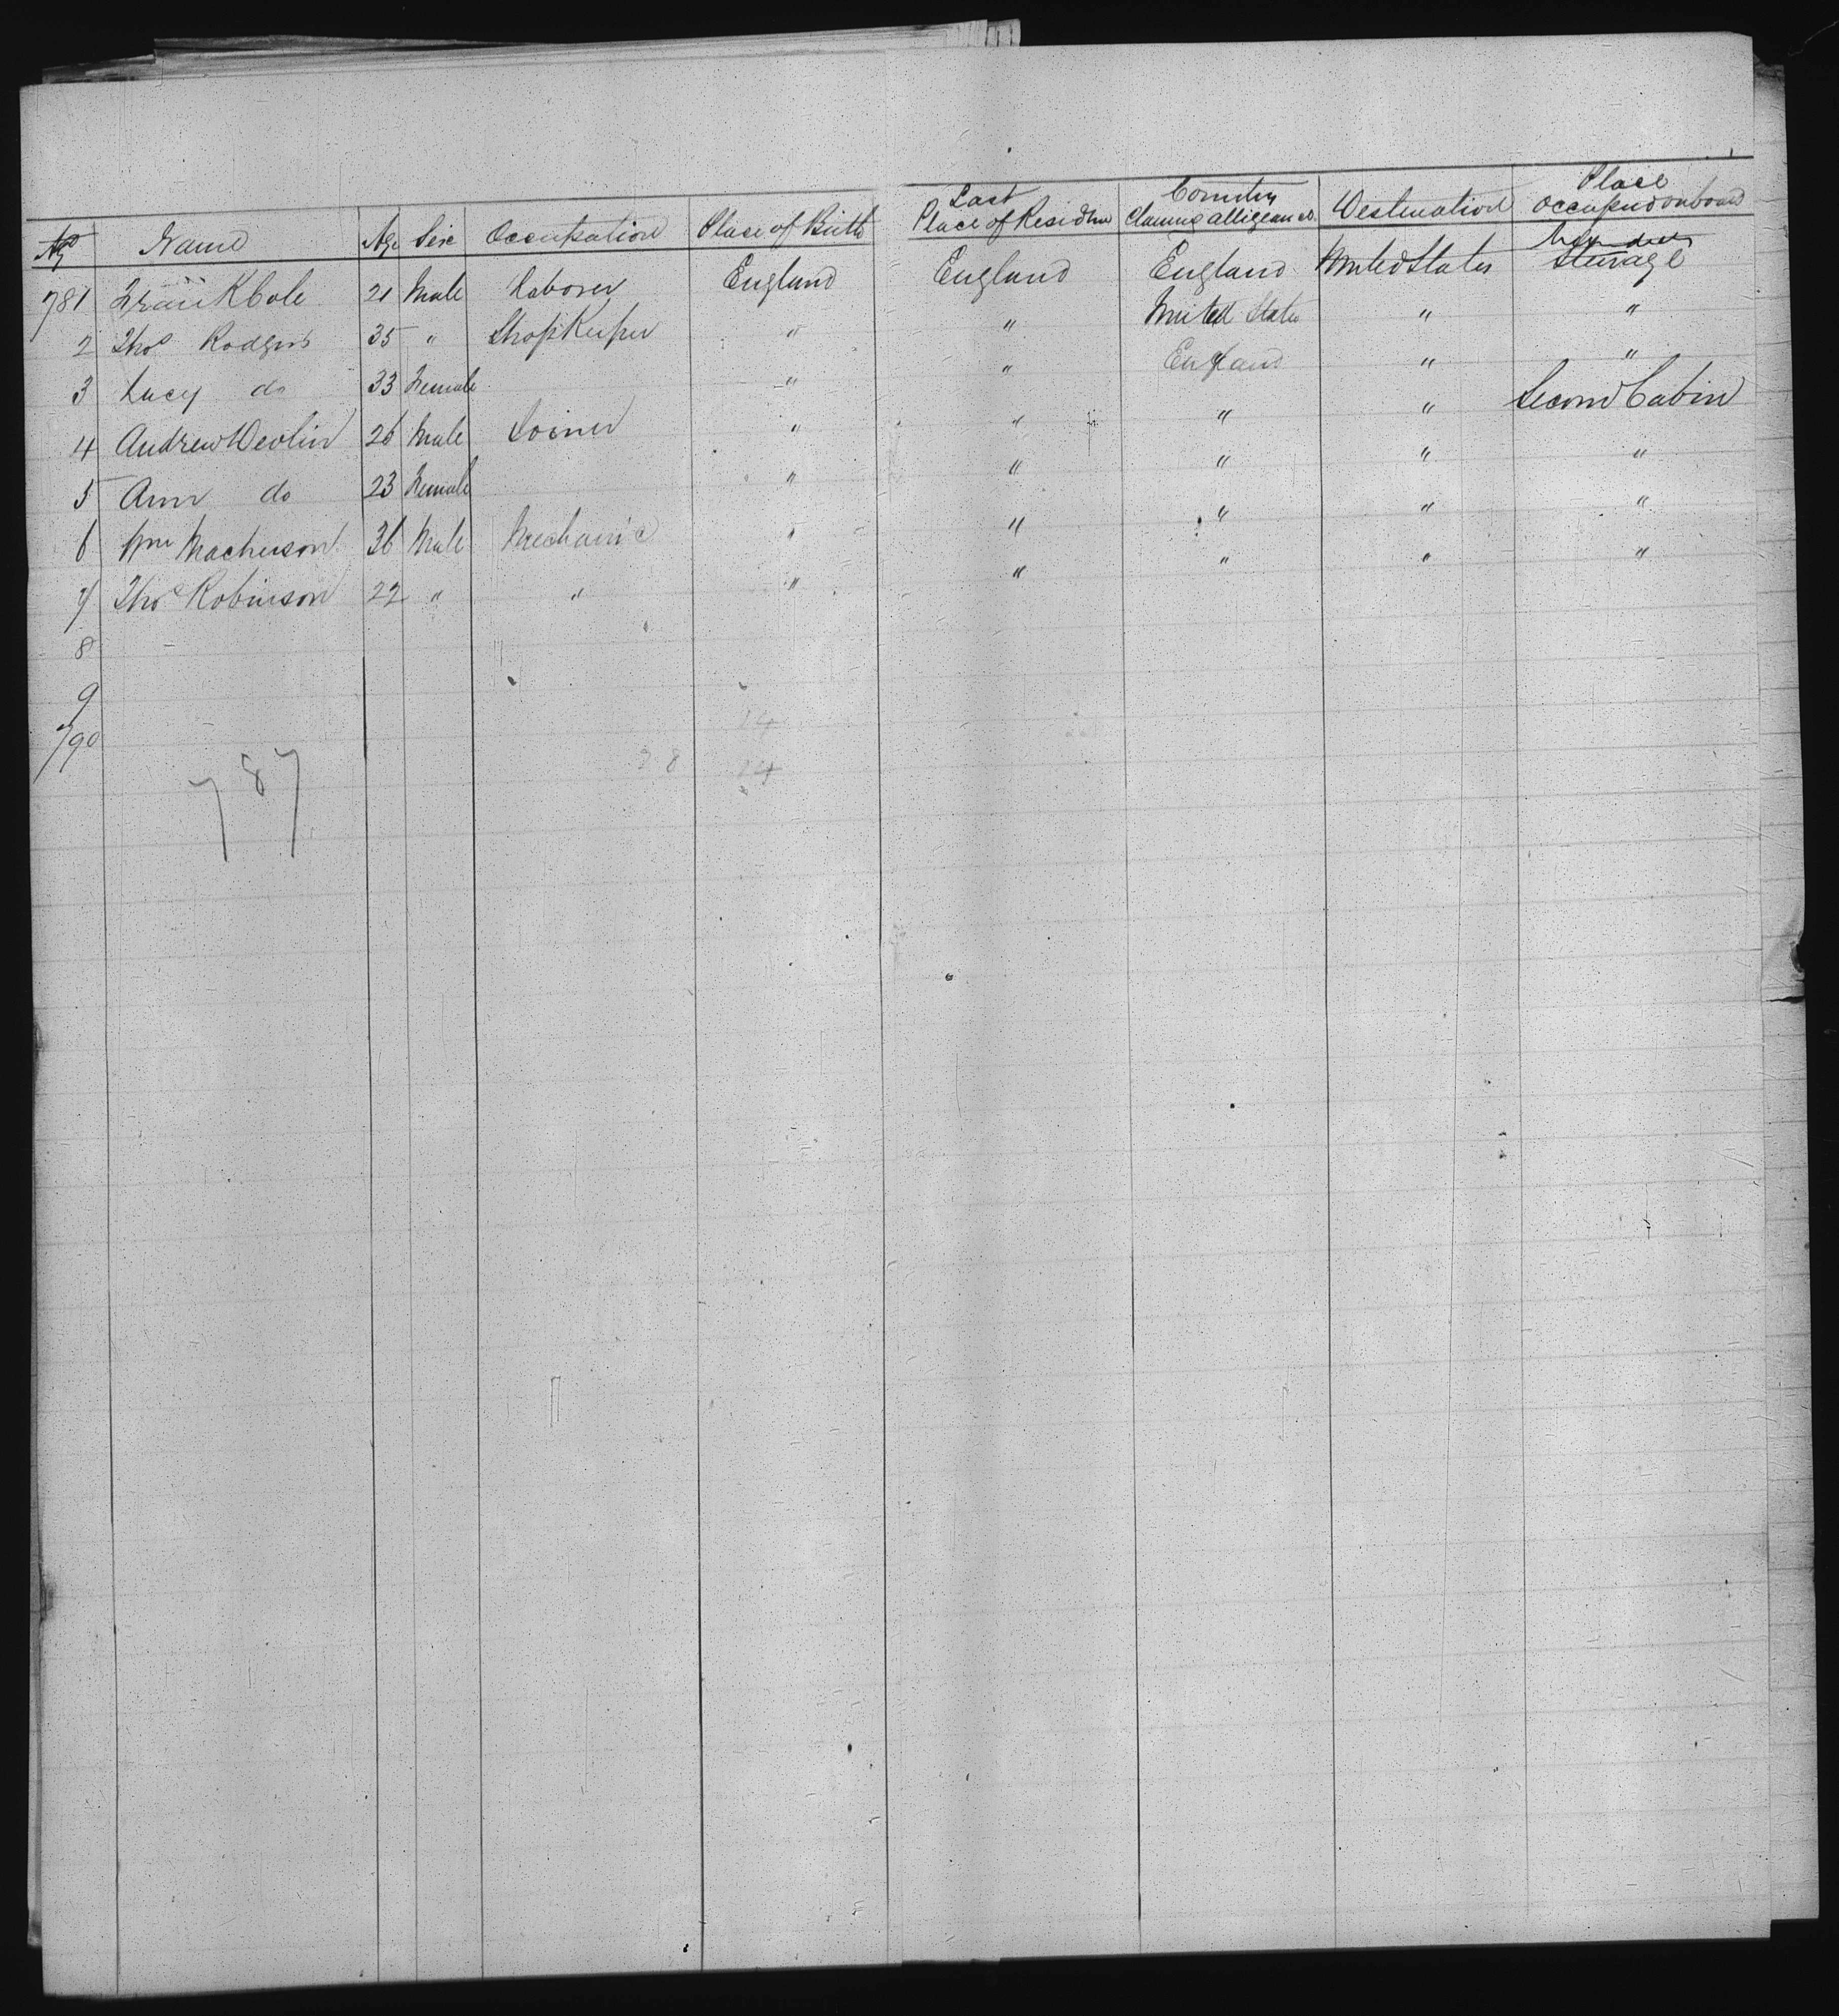 No Name Age Sex Occupation Place of Birth Last Place of Residence Country Claiming allegeance Destination Place occupied on board
781 Frank Cole 21 Male Laborer England England England United States Steerage
2 Thos Rodgers 35 " ShopKeeper " " United States " "
3 Lucy do 33 Female " " England " "
4 Andrew Devlin 26 Male Joiner " " " " Second Cabin
5 Ann do 23 Female " " " " "
6 Wm 36 Male Mechanic " " " " "
7 Thos Robinson 22 " " " " " " "
8
9
790
787